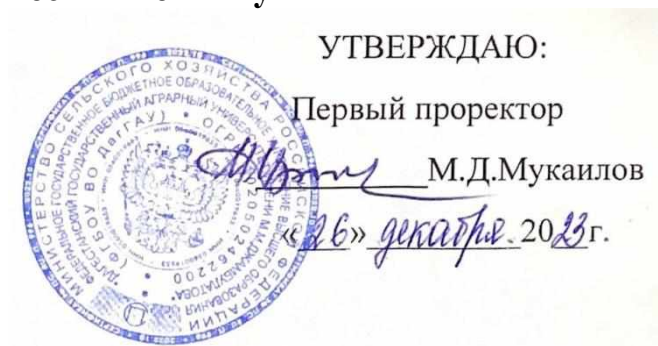 УТВЕРЖДАЮ:
Первый проректор
М.Д.Мукаилов
«26» декабря 2023г.
МИНИСТЕРСТВО СЕЛЬСКОГО ХОЗЯЙСТВА РОССИЙСКОЙ ФЕДЕРАЦИИ
ФЕДЕРАЛЬНОЕ ГОСУДАРСТВЕННОЕ БЮДЖЕТНОЕ ОБРАЗОВАТЕЛЬНОЕ УЧРЕЖДЕНИЕ ВЫСШЕГО ОБРАЗОВАНИЯ
"ДАГЕСТАНСКИЙ ГОСУДАРСТВЕННЫЙ АГРАРНЫЙ УНИВЕРСИТЕТ ИМЕНИ М.М.ДЖАМБУЛАТОВА"
(ФГБОУ ВО ДагГАУ) * ОГРН